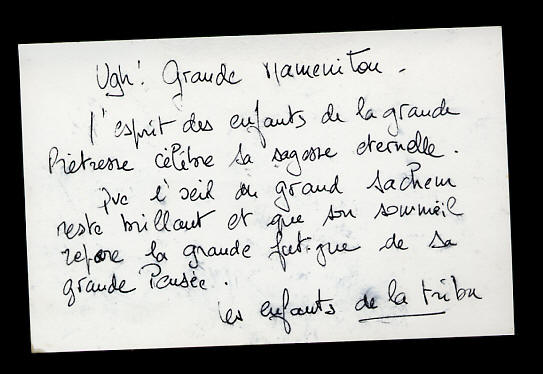 Ugh! Grande Mamenitou.
l'esprit des enfants de la grande
Prêtresse célèbre sa sagesse eternelle.
Que l'œil du grand sachem
reste brillant et que son sommeil
repose la grande fatigue de sa
grande Pensée.
les enfants de la tribu